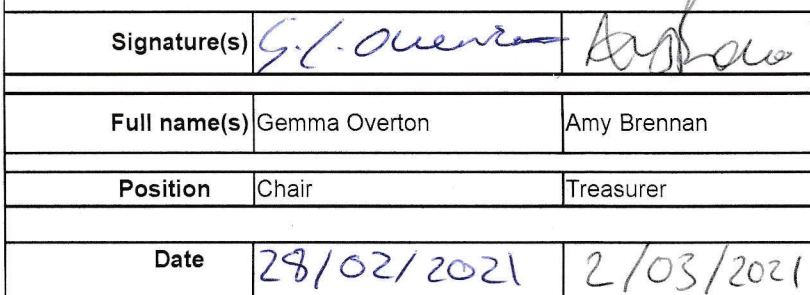 Signature(s) G.L. Overton
Full name(s) Gemma Overton Amy Brennan
Position Chair Treasurer
Date 28/02/2021 2/03/2021